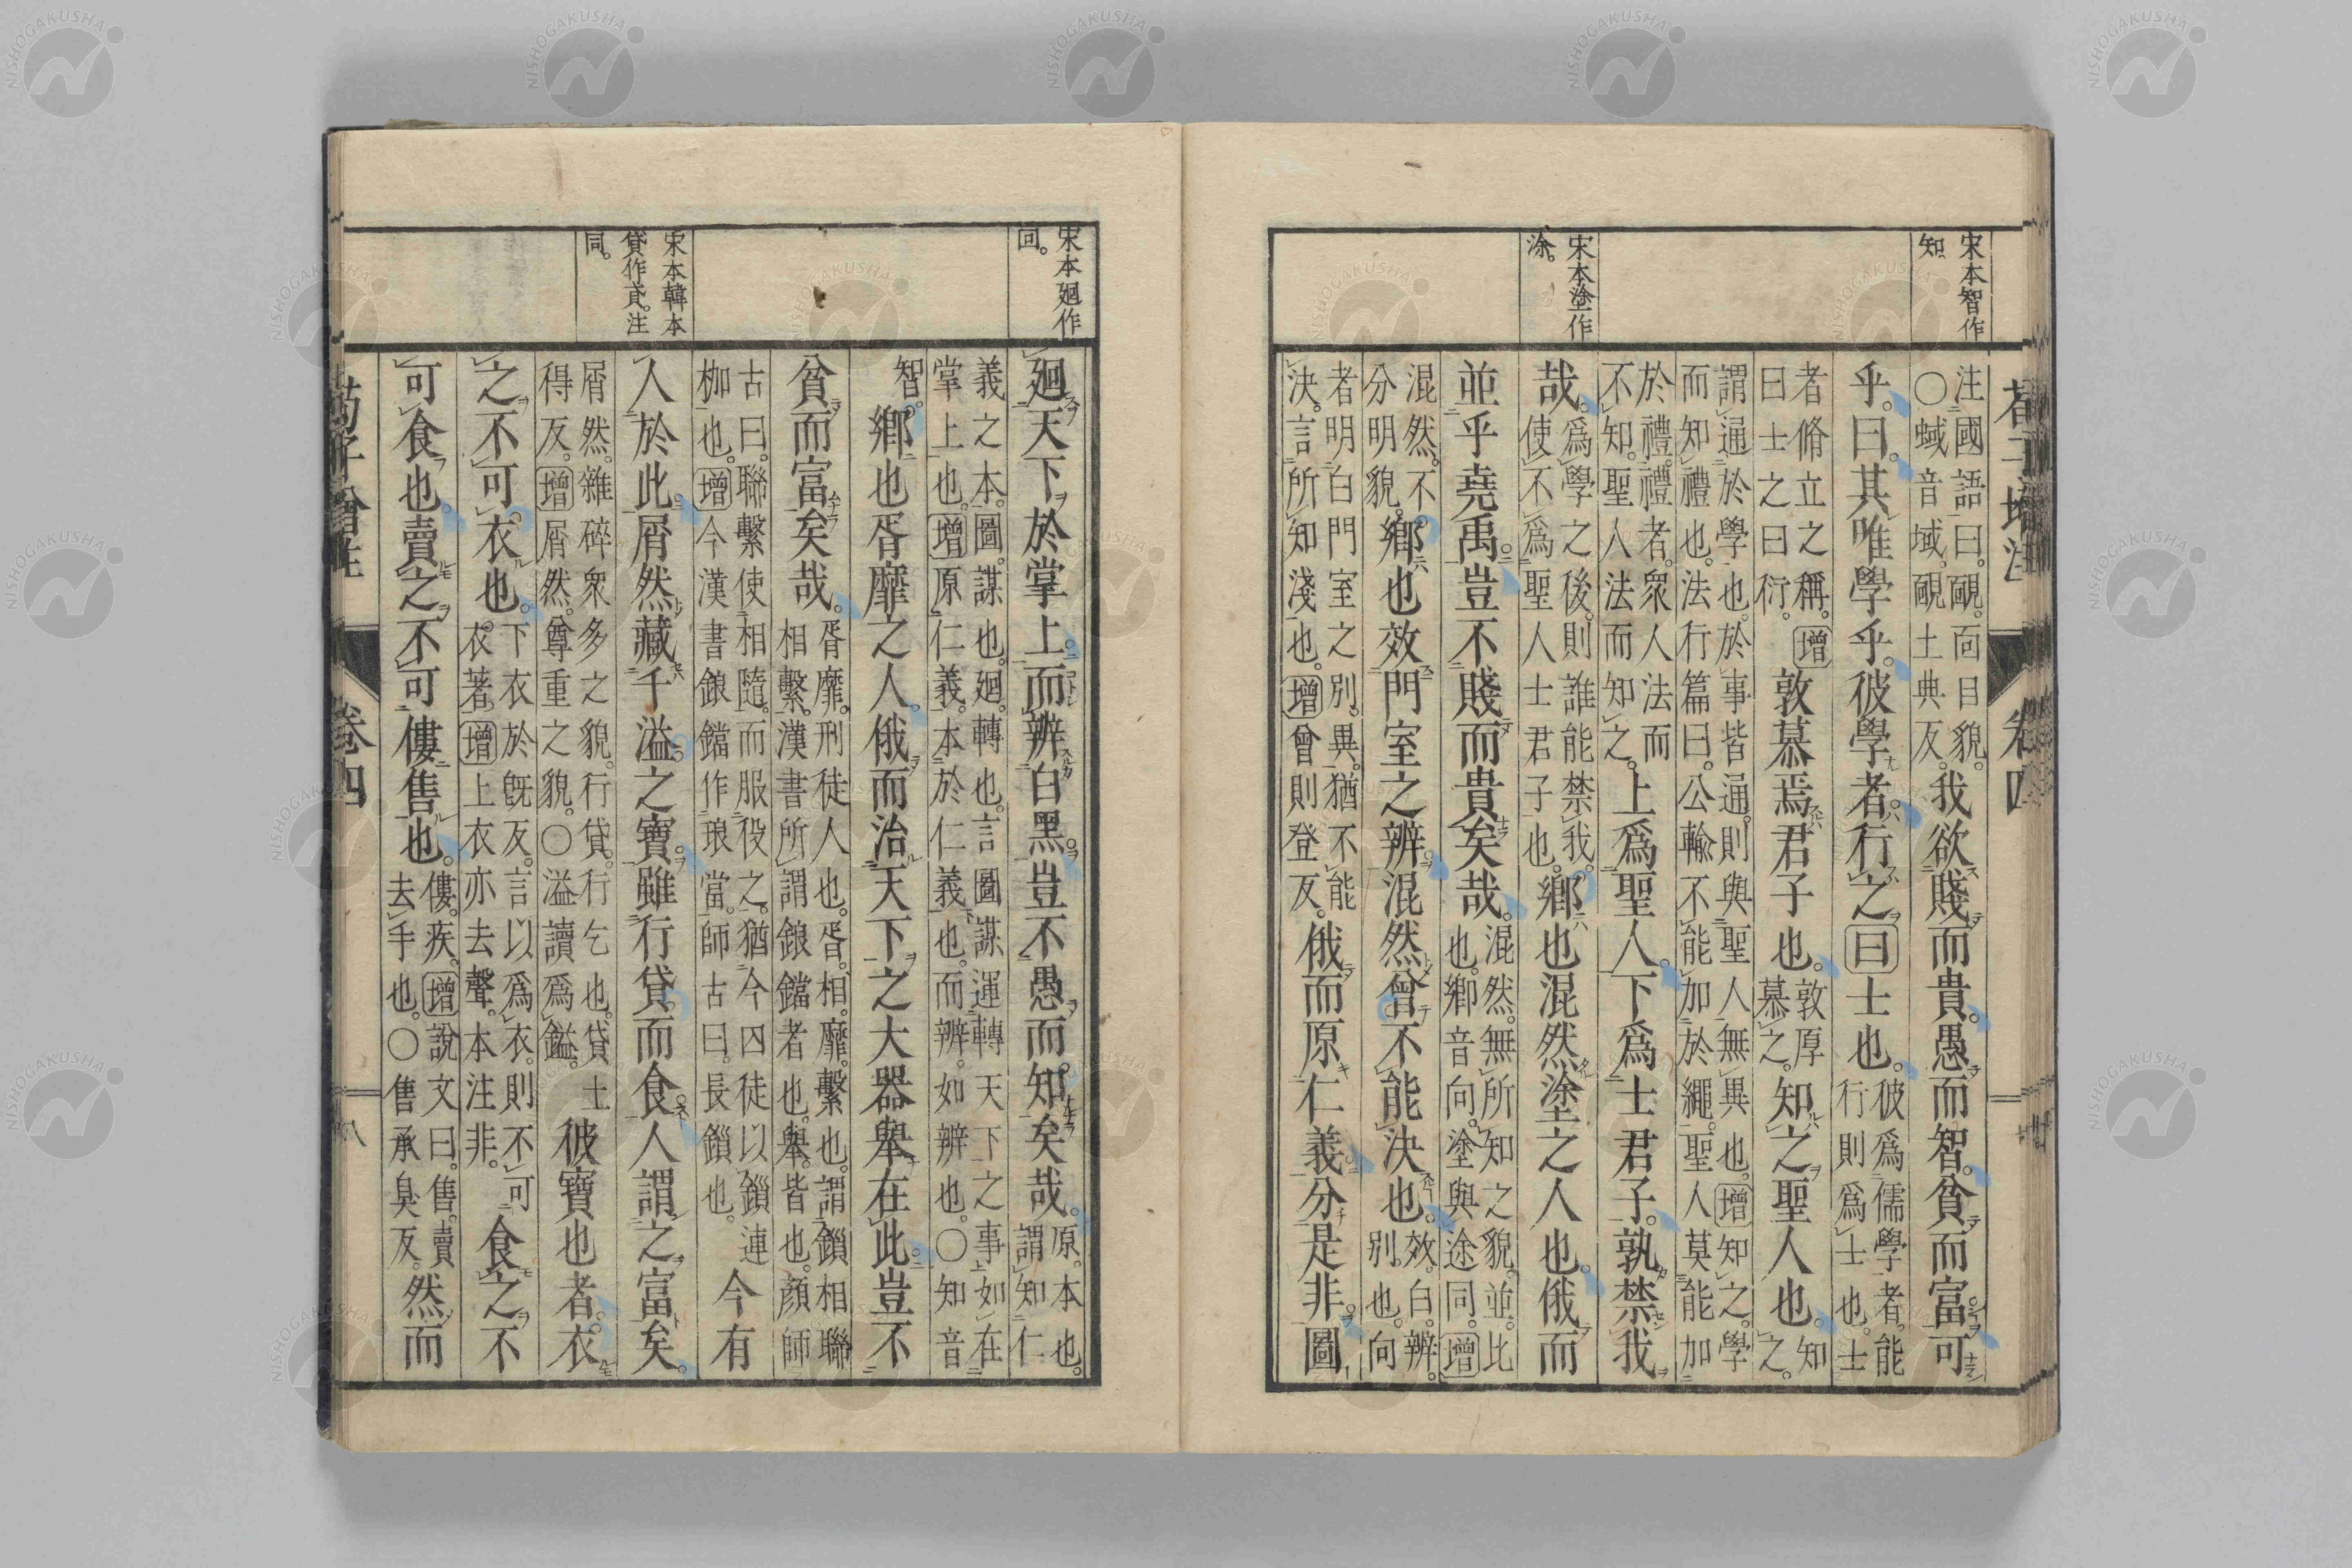 宋本智作
知
宋本塗作
涂。
注國語曰。靦。面目貌。
〇蜮音域。靦土典反。我欲賤而貴。愚而智。貧而富。可
乎。曰。其唯學乎。彼學者。行之曰士也。彼爲儒學者。能
行則爲士也。士
者脩立之稱。增
曰士之曰衍。敦慕焉君子也。敦厚
慕之。知之聖人也。知
之。
謂通於學也。於事皆通。則與聖人無異也。增知之。學
而知禮也。法行篇曰。公輸不能加於繩。聖人莫能加
於禮。禮者。衆人法而
不知。聖人法而知之。上爲聖人。下爲士君子。孰禁我
哉。爲學之後。則誰能禁我。
使不爲聖人士君子也。鄉也混然塗之人也。俄而
並乎堯禹。豈不賤而貴矣哉。混然。無所知之貌。並。比
也。鄉音向。塗與途同。增
混然。不
分明貌。鄉也效門室之辨。混然曾不能決也。效。白。辨。
別。也。向
者明白門室之別異。猶不能
決。言所知淺也。增曾則登反。俄而原仁義。分是非。圖
荀子增注
卷四
宋本廻作
回。
宋本韓本
貸作貣。注
同。
廻天下於掌上。而辨白黑。豈不愚而知矣哉。原。本也。
謂知仁
義之本。圖。謀也。廻。轉也。言圖謀運轉天下之事。如在
掌上也。增原仁義。本於仁義也。而辨。如辨也。〇知音
智。鄉也胥靡之人。俄而治天下之大器舉在此。豈不
貧而富矣哉。胥靡。刑徒人也。胥。相。靡。繫也。謂鎖相聯
相繫。漢書所謂鋃鐺者也。舉。皆也。顔師
古曰。聯繫使相隨。而服役之。猶今囚徒以鎖連
枷也。增今漢書鋃鐺作琅當。師古曰。長鎖也。今有
人於此。屑然藏千溢之寶。雖行貸而食。人謂之富矣。
屑然。雜碎衆多之貌。行貸。行乞也。貸土
得反。增屑然。尊重之貌。〇溢讀爲鎰。彼寶也者。衣
之不可衣也。下衣於既反。言以爲衣。則不可
衣著。增上衣亦去聲。本注非。食之不
可食也。賣之不可僂售也。僂。疾。增說文曰。售。賣
去手也。〇售承臭反。然而
卷四
八